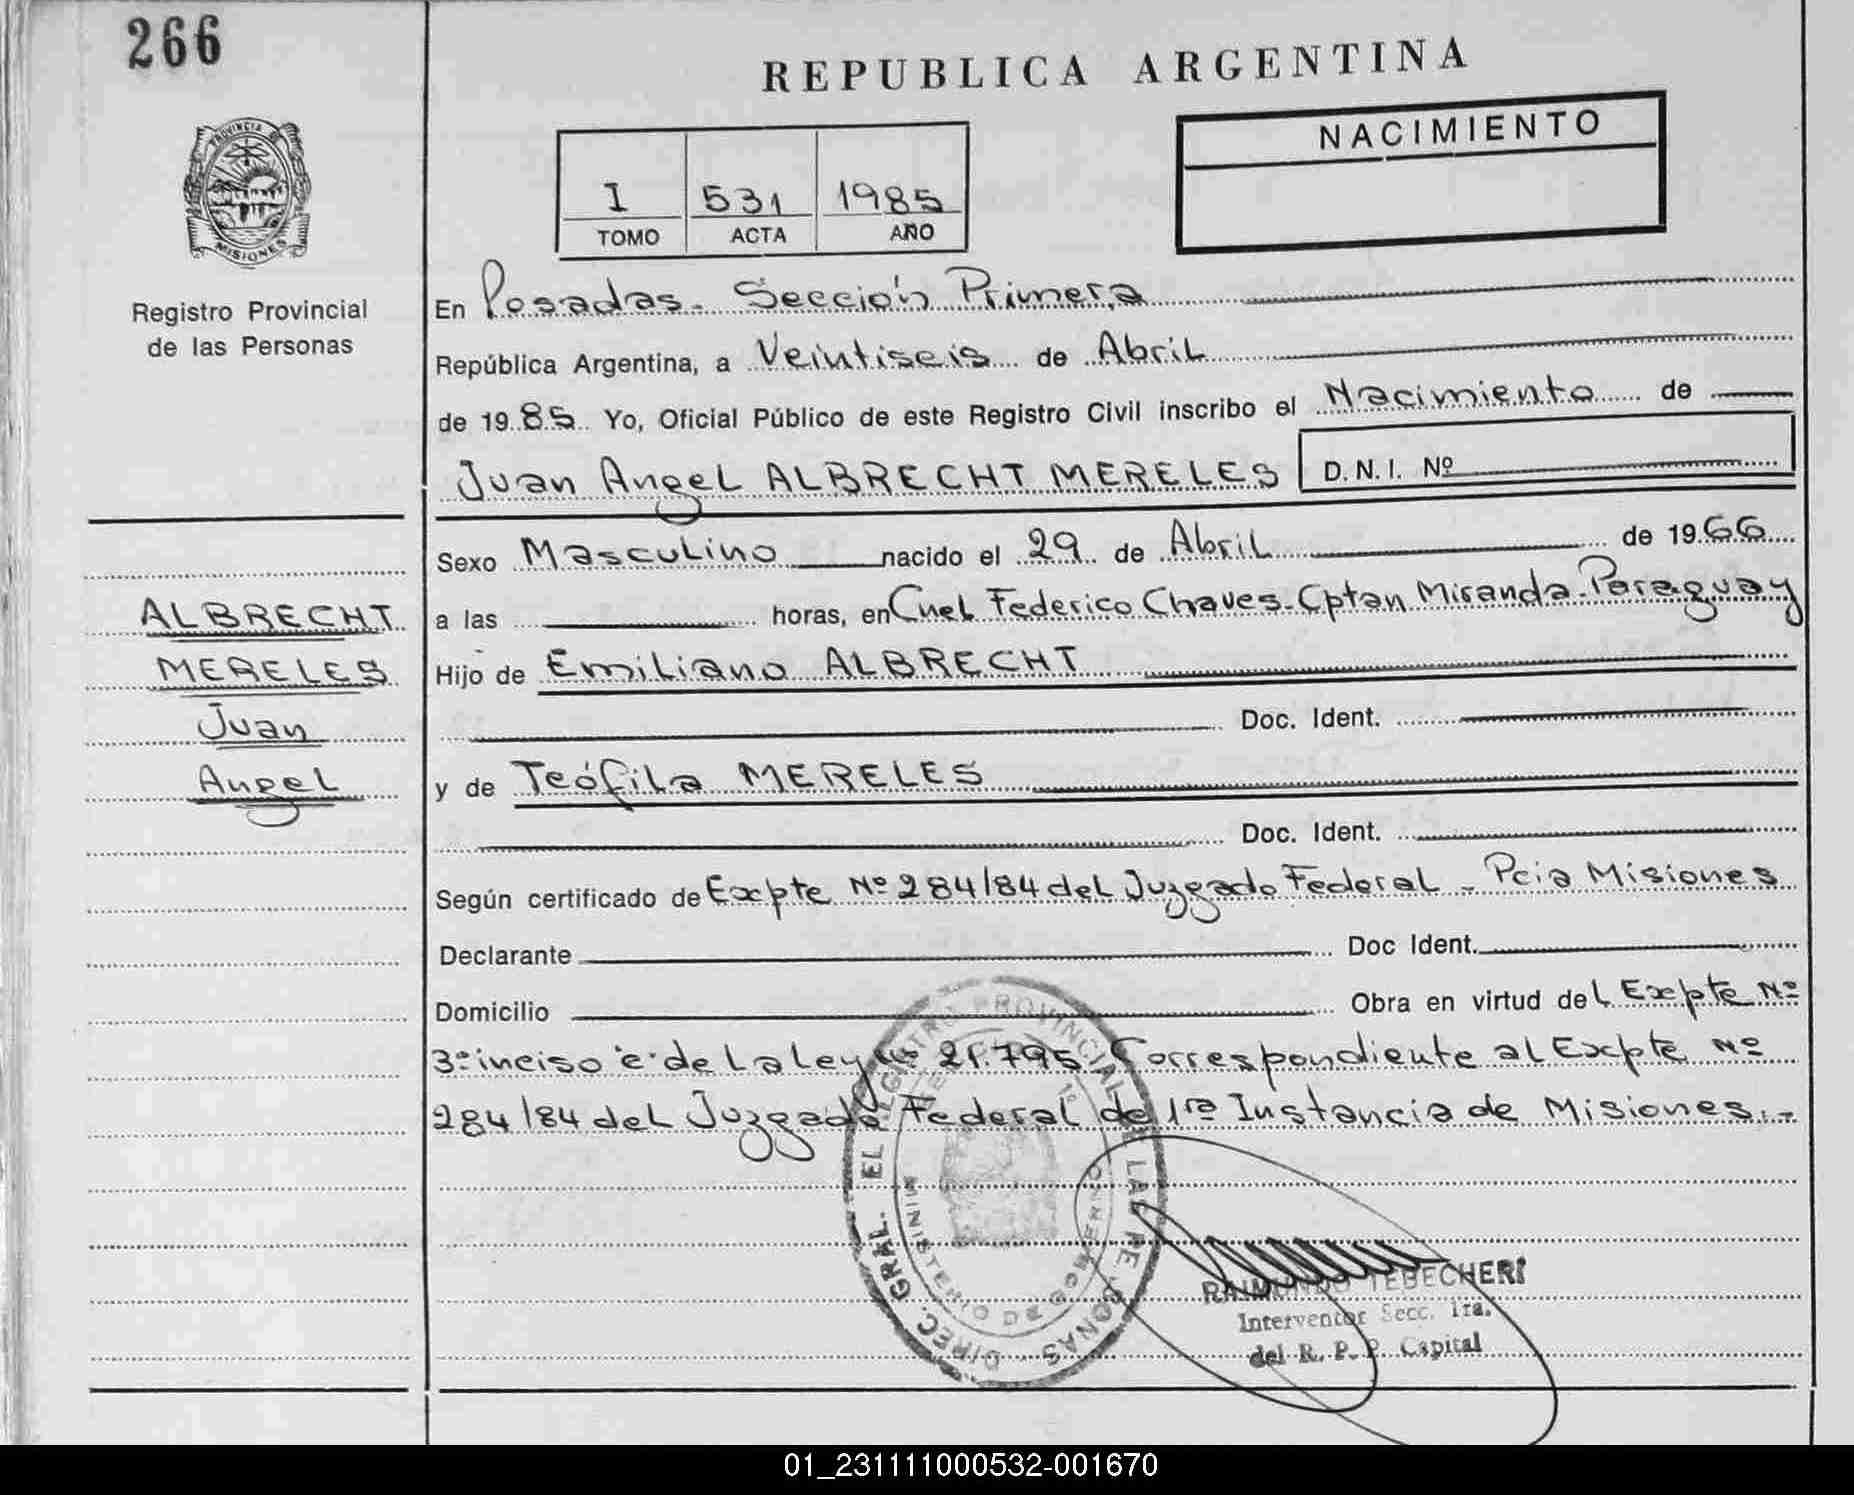 266
REPUBLICA ARGENTINA
NACIMIENTO
I 531 1985
TOMO ACTA AÑO
PROVINCIA DE
MISIONES
Registro Provincial
de las Personas
En Posadas. Sección Primera
República Argentina, a Veintiseis de Abril
de 1985 Yo, Oficial Público de este Registro Civil inscribo el Nacimiento de
Juan Angel ALBRECHT MERELES D.N.I. Nº
Sexo Masculino nacido el 29 de Abril de 1966
a las horas, en Cnel Federico Chaves-Cptan Miranda-Paraguay
Hijo de Emiliano ALBRECHT
Doc. Ident.
y de Teófila MERELES
Doc. Ident.
Según certificado de Expte Nº 284/84 del Juzgado Federal - Pcia Misiones
Declarante Doc Ident.
Domicilio Obra en virtud del Expte Nº
3º inciso "e" de la ley Nº 21.795 Correspondiente al Expte Nº
284/84 del Juzgado Federal de 1ra Instancia de Misiones.-
ALBRECHT
MERELES
Juan
Angel
DIREC. GRAL. EL REGISTRO PROVINCIAL DE LAS PERSONAS
MINISTERIO DE GOBIERNO
RAIMUNDO TEBECHERI
Interventor Secc. 1ra.
del R. P. P. Capital
01_231111000532-001670